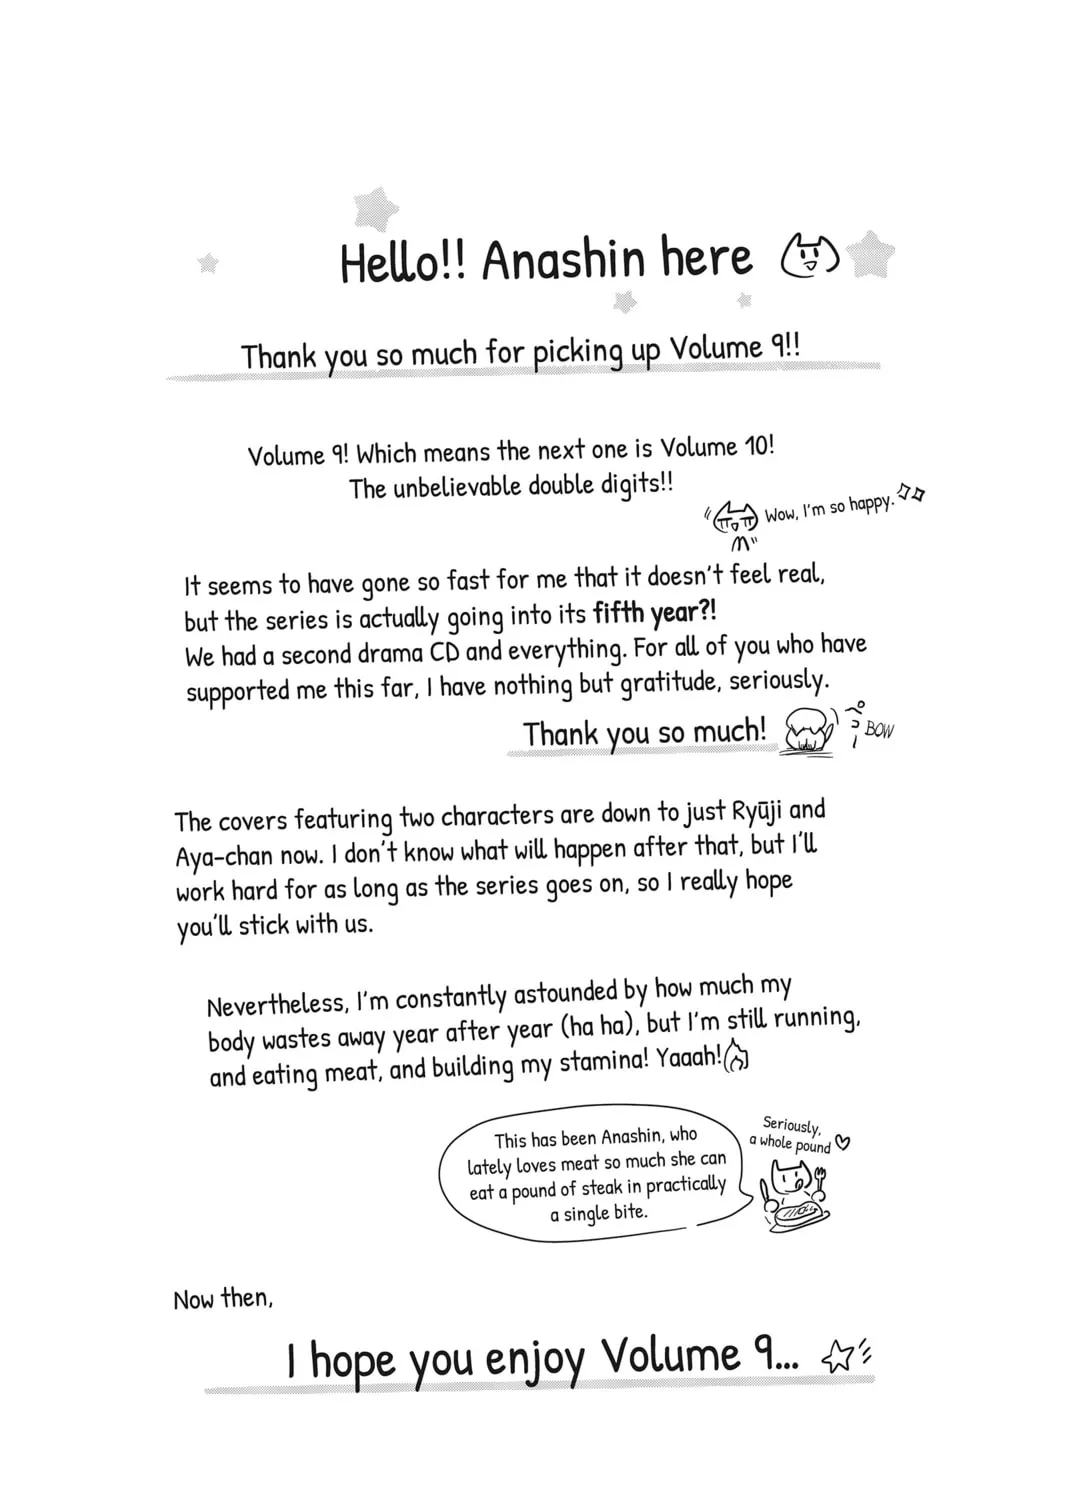 Hello!! Anashin here
Thank you so much for picking up Volume 9!!
Volume 9! Which means the next one is Volume 10!
The unbelievable double digits!!
Wow, I'm so happy.
It seems to have gone so fast for me that it doesn't feel real,
but the series is actually going into its fifth year?!
We had a second drama CD and everything. For all of you who have
supported me this far, I have nothing but gratitude, seriously.
Thank you so much!
BOW
The covers featuring two characters are down to just Ryūji and
Aya-chan now. I don't know what will happen after that, but I'll
work hard for as long as the series goes on, so I really hope
you'll stick with us.
Nevertheless, I'm constantly astounded by how much my
body wastes away year after year (ha ha), but I'm still running,
and eating meat, and building my stamina! Yaaah!
This has been Anashin, who
lately loves meat so much she can
eat a pound of steak in practically
a single bite.
Seriously,
a whole pound
Now then,
I hope you enjoy Volume 9...